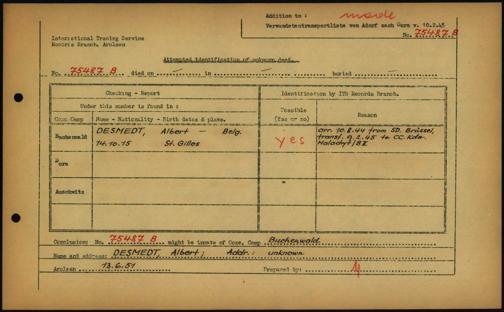 Addition to : morde
Verwundetentransportliste von Adorf nach Gera v. 10.2.45
No. 75487 B
International Tracing Service
Records Branch, Arolsen
Attempted identification of unknown dead.
No. 75487 B died on in buried
Checking - Report
Identification by ITS Records Branch.
Under this number is found in :
Possible
(yes or no)
Reason
Conc. Camp
Name - Nationality - Birth dates & place.
Buchenwald
DESMEDT, Albert - Belg.
14.10.15 St. Gilles
yes
arr. 10.8.44 from SD. Brüssel
transf. 9.2.45 to CC. Kdo.
Malachyt/BII
Dora
Auschwitz
Conclusion: No. 75487 B might be inmate of Conc. Camp Buchenwald
Name and address: DESMEDT, Albert; Addr.: unknown
Arolsen 13.6.51 Prepared by: